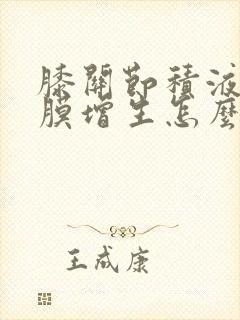 膝關節積液
膜增生怎麼
王成康